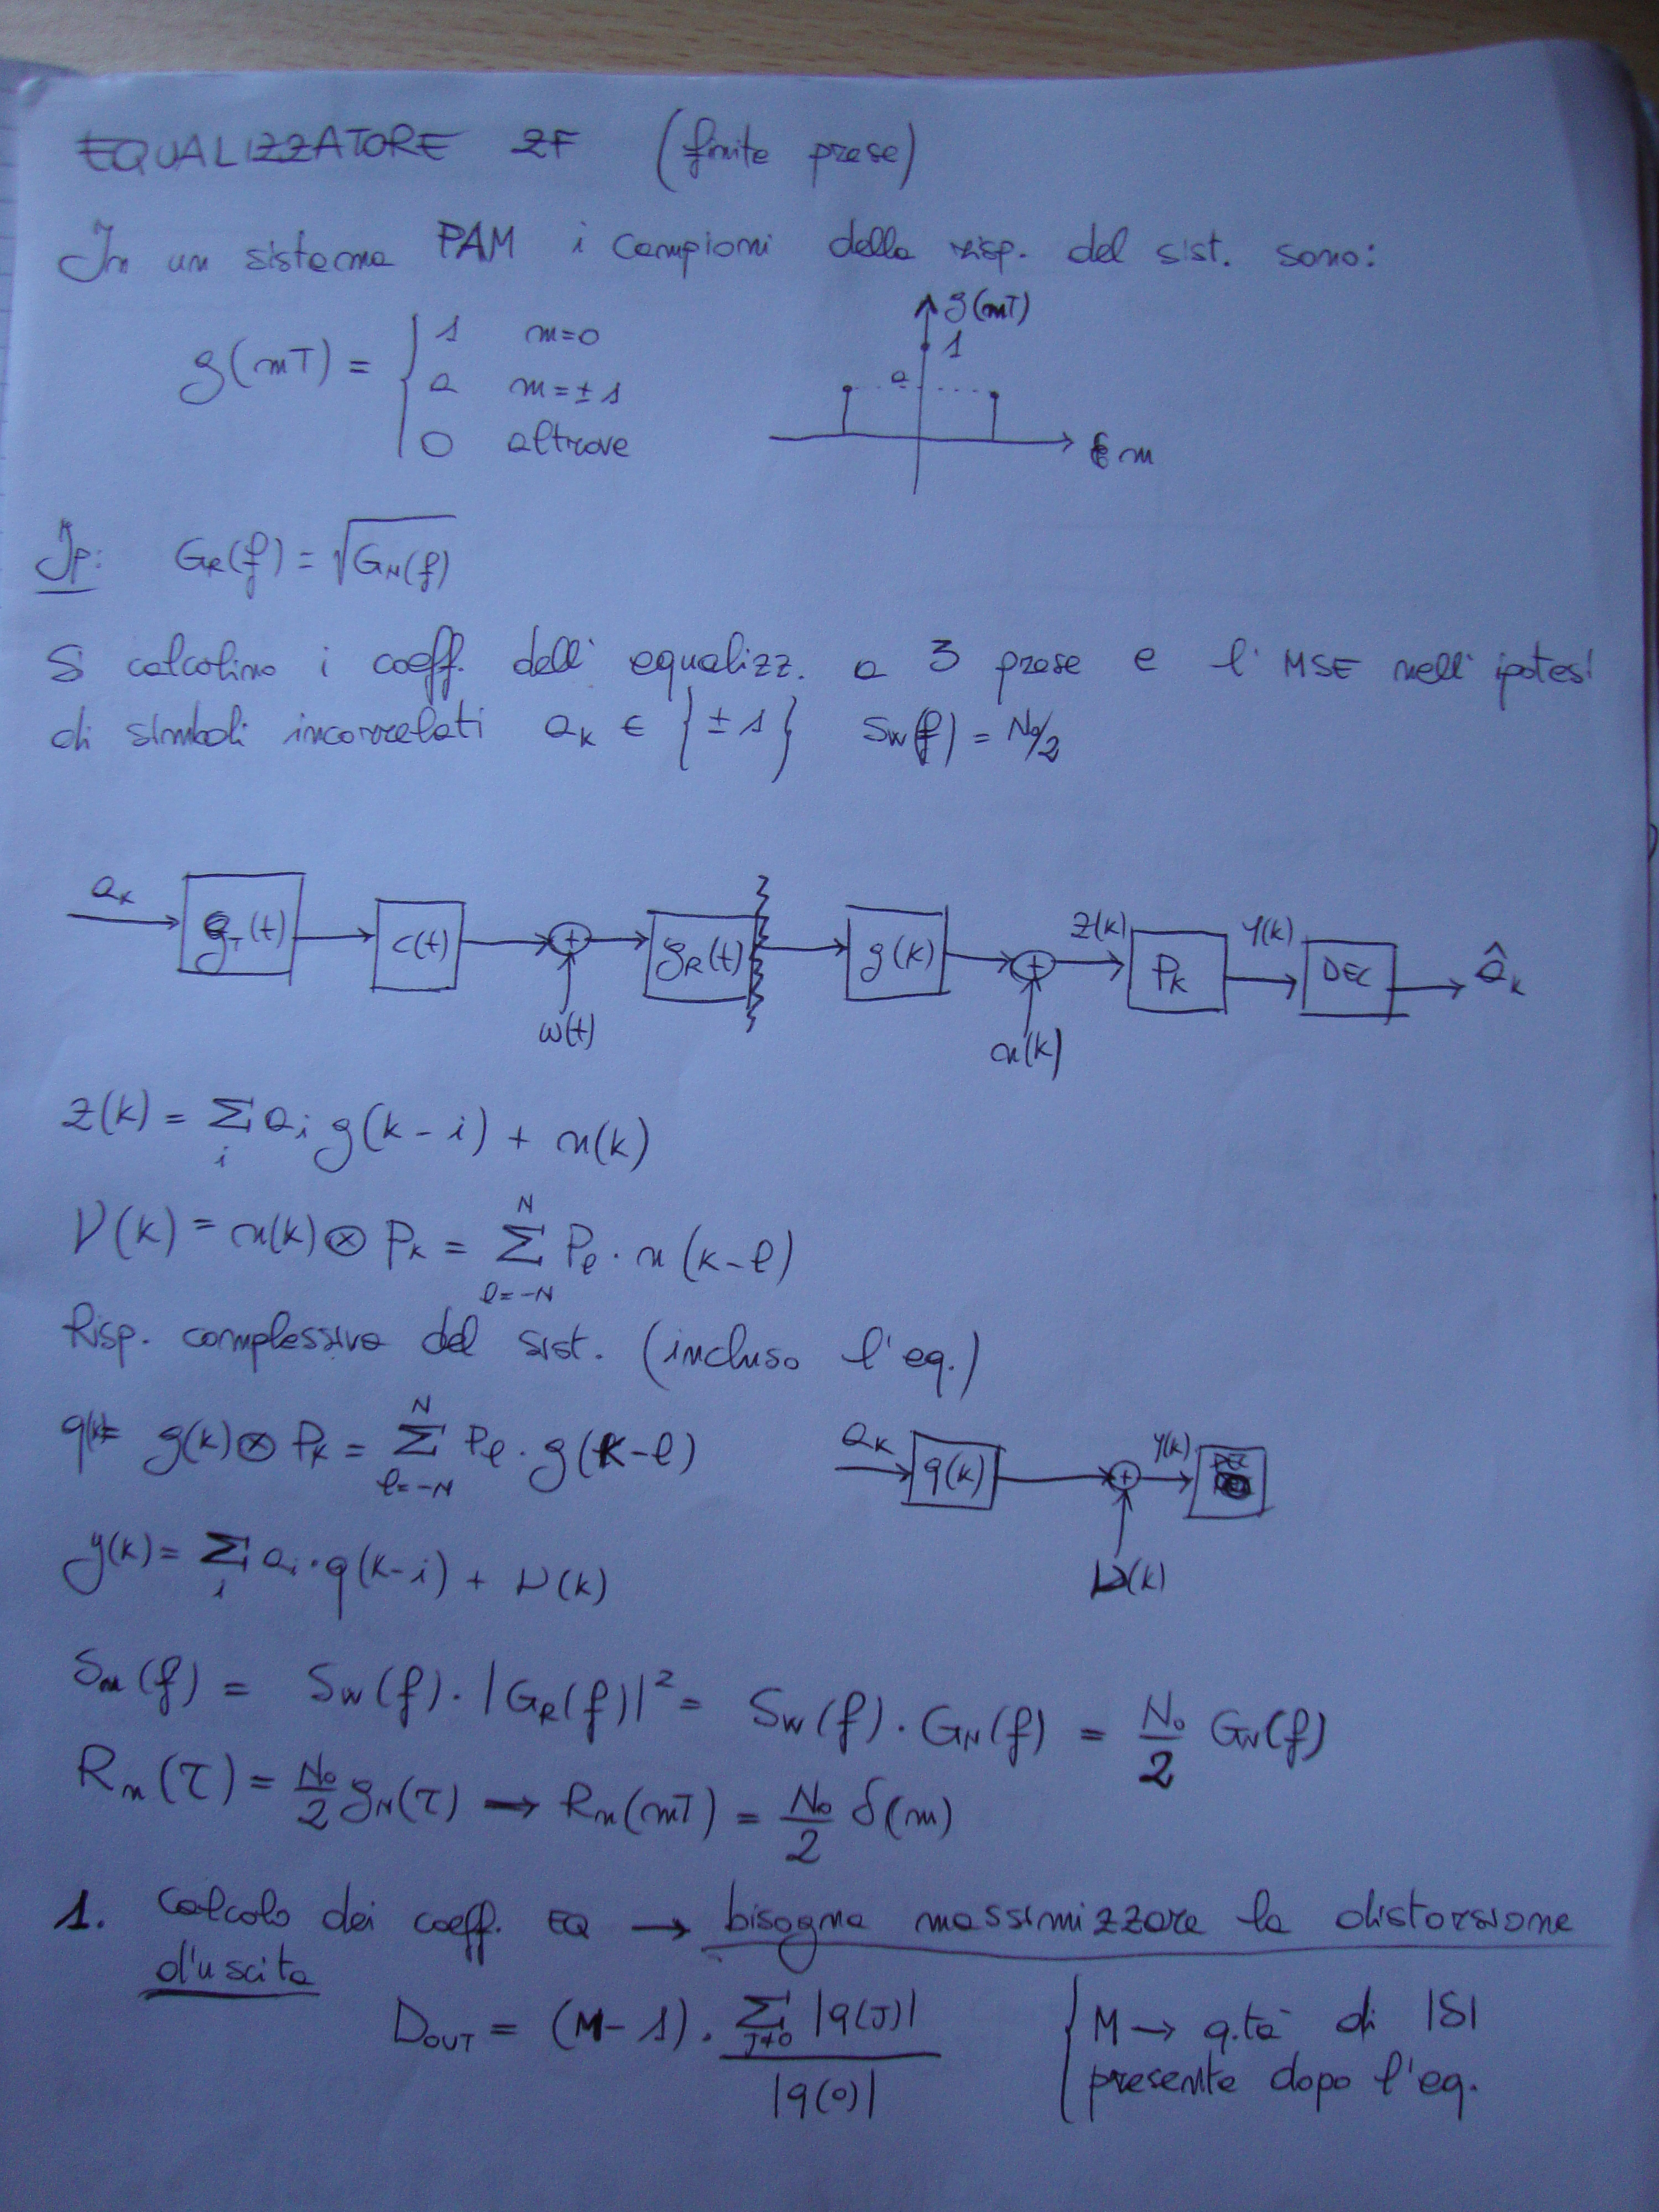 EQUALIZZATORE ZF (finite prese)
In un sistema PAM i campioni della risp. del sist. sono:
g(mT) = { 1 m=0
a m=±1
0 altrove
g(mT)
1
a
m
Ip: G_R(f) = √G_N(f)
Si calcolino i coeff. dell' equalizz. a 3 prese e l' MSE nell' ipotesi
di simboli incorrelati a_k ∈ {±1} S_W(f) = N₀/2
a_k g_T(t) c(t) + g_R(t) g(k) + z(k) P_k y(k) DEC â_k
w(t) n(k)
z(k) = Σ_i a_i g(k-i) + n(k)
ν(k) = n(k) ⊗ P_k = Σ_{ℓ=-N}^{N} P_ℓ · n(k-ℓ)
Risp. complessiva del sist. (incluso l'eq.)
q(k)= g(k) ⊗ P_k = Σ_{ℓ=-N}^{N} P_ℓ · g(k-ℓ)
a_k q(k) + y(k) DEC
ν(k)
y(k) = Σ_i a_i · q(k-i) + ν(k)
S_n(f) = S_W(f) · |G_R(f)|² = S_W(f) · G_N(f) = N₀/2 G_N(f)
R_n(τ) = N₀/2 g_N(τ) → R_n(mT) = N₀/2 δ(m)
1. Calcolo dei coeff. EQ → bisogna massimizzare la distorsione
d'uscita
D_OUT = (M-1) · Σ_{J≠0} |q(J)| / |q(0)|
{ M → q.tà di ISI
presente dopo l'eq.